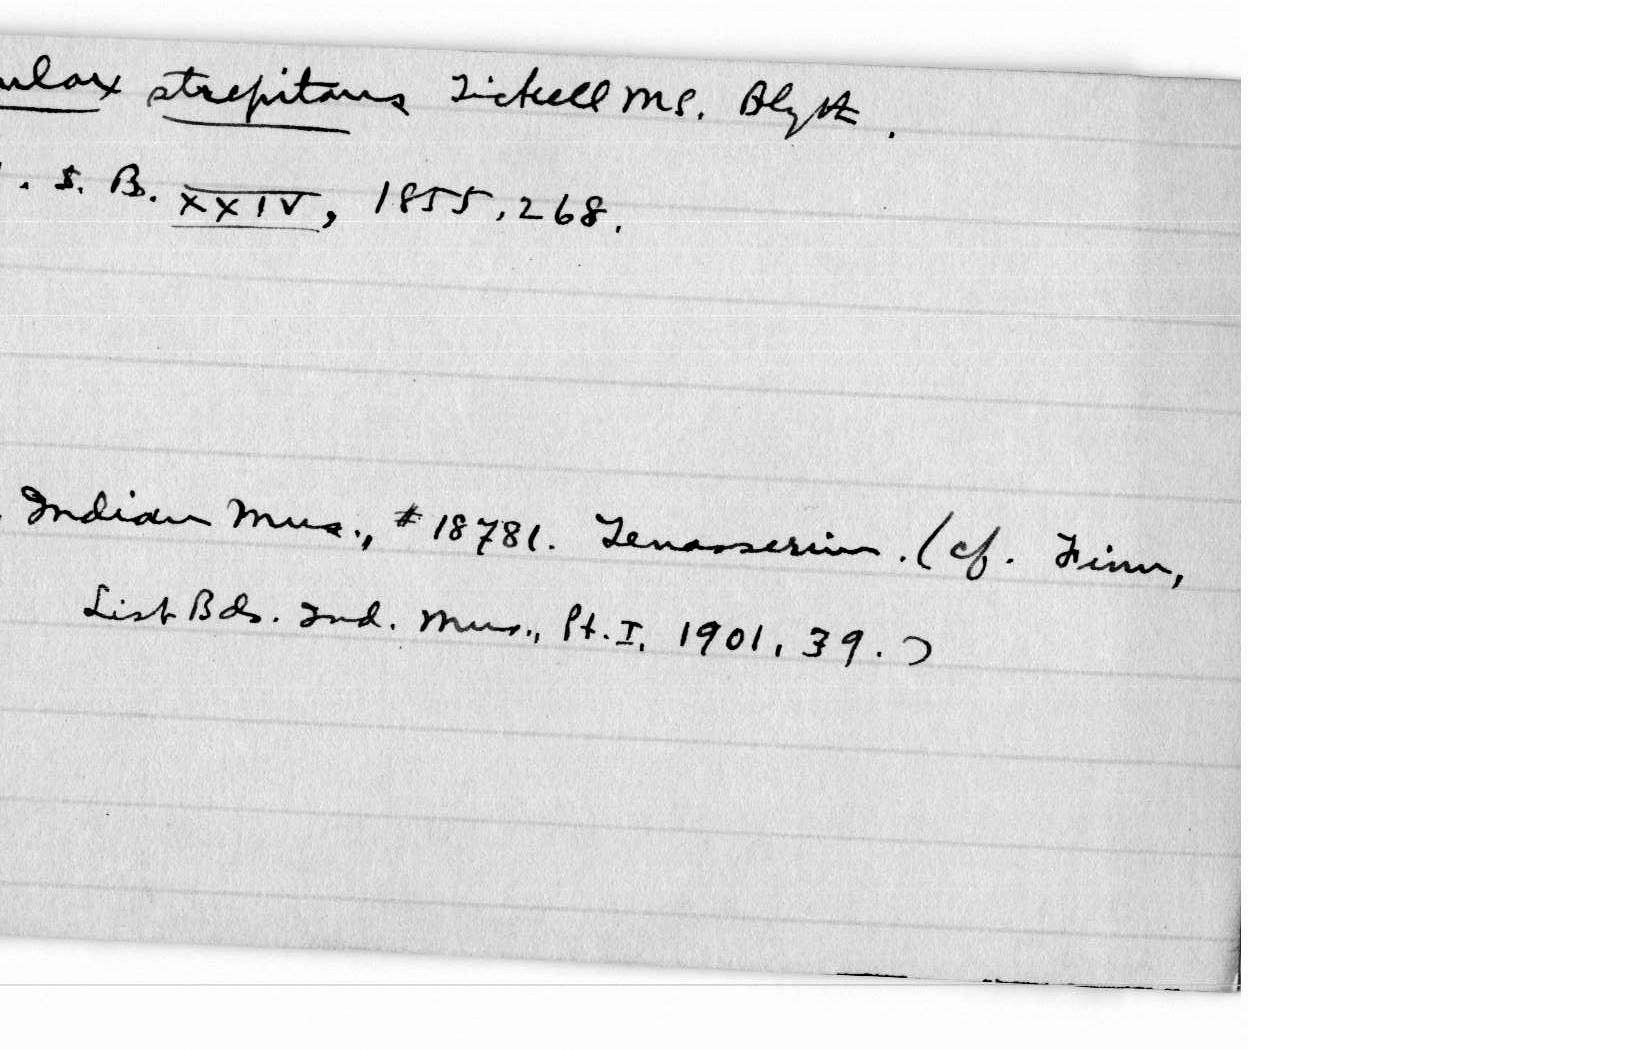 ulax strepitans Tickell MS. Blyth.
. S. B. XXIV, 1855, 268.
Indian Mus., #18781. Tenasserim. (cf. Finn,
List Bds. Ind. Mus., Pt. I, 1901, 39.)